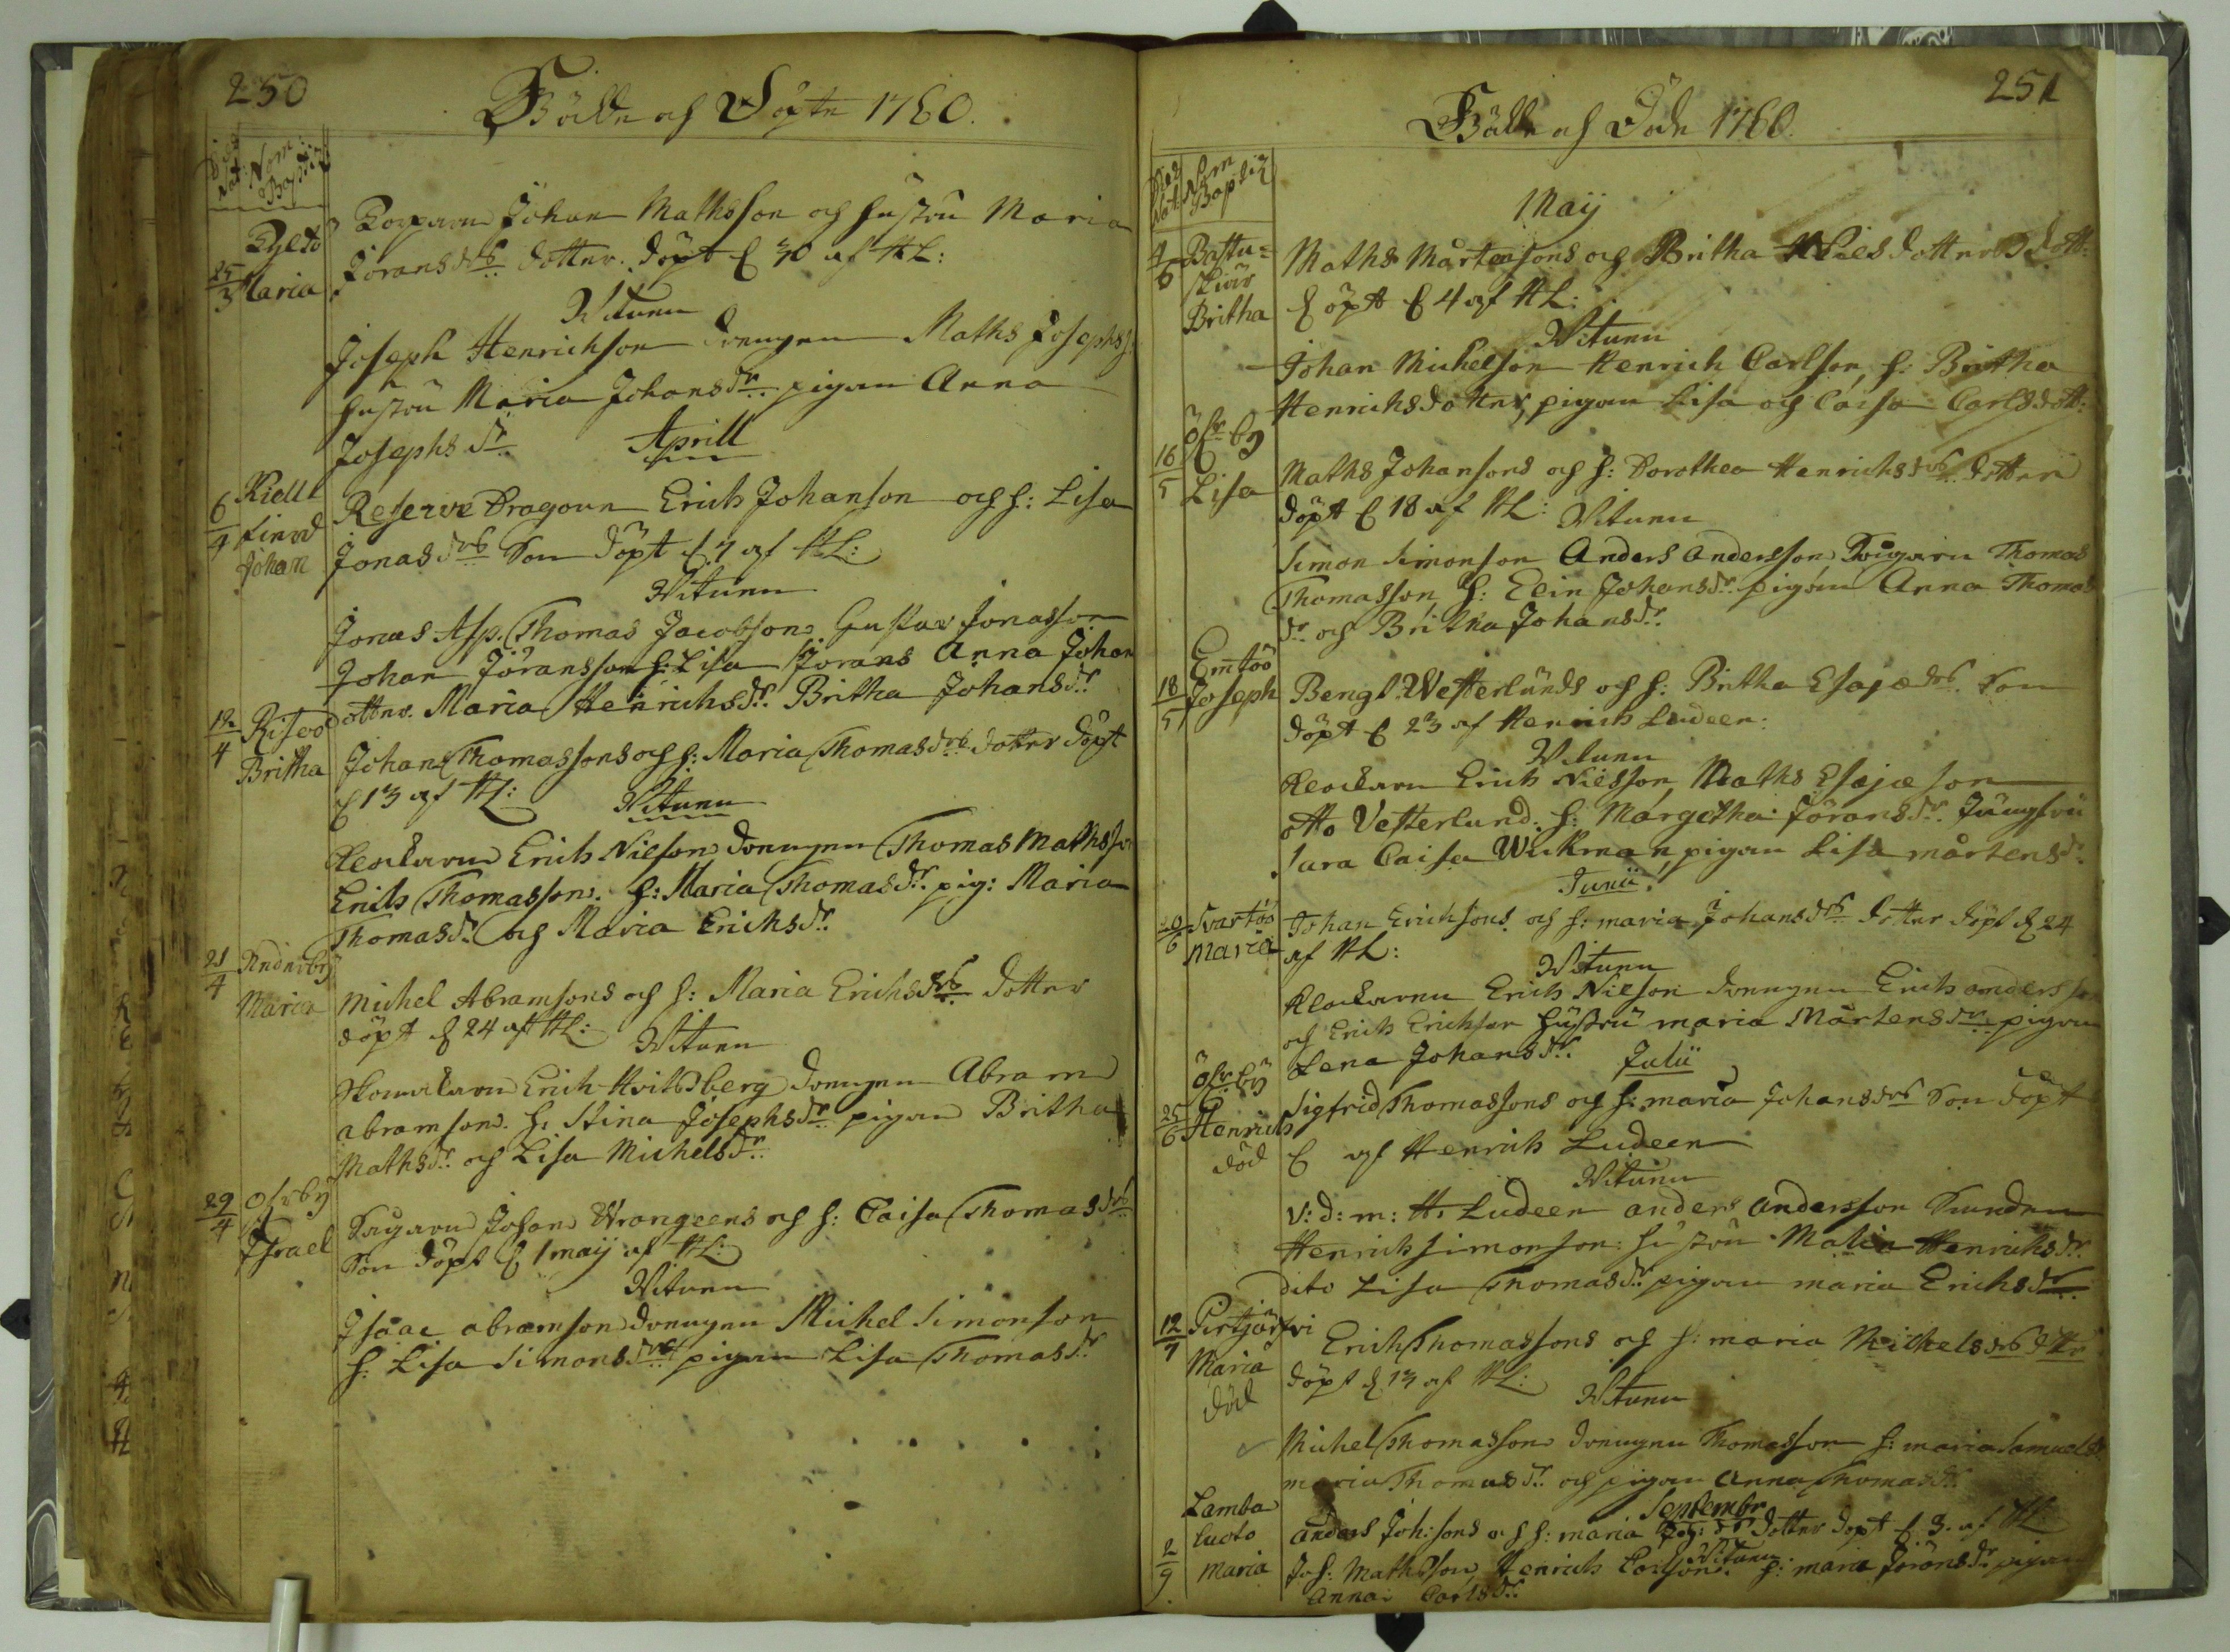 250
Födde och Döpte 1760.
Dies Nat: Nom: Baptiz
Maria
Johan Mathsson och hustru Maria
25/3
Jörans drs dotter. döpt d 30 af HL:
Witnen
Joseph Henrichson drengen Maths Josephs
hustru Maria Johansdr. pigan Anna
Josephs dr.
Aprill
6/4
Johan
Reserve Dragoun Erich Johanson och h: Lisa
Jonas drs Son döpt d 7 af HL:
Witnen
Jonas Asp. Thomas Jacobson Gustav Jonasson
Johan Jöransson h: Lisa Jörans Anna Johan
dotter. Maria Henrichsdr. Britha Johansdr.
12/4
Risöö
Britha
Johan Thomassons och h: Maria Thomasdrs dotter döpt
d 13 af HL:
Witnen
Klockaren Erich Nilson drengen Thomas Mathsso
Erich Thomasson. h: Maria Thomasdr. pig: Maria
Thomasdr. och Maria Erichsdr.
21/4
Maria
Michel Abramsons och h: Maria Erichsdrs dotter
döpt d 24 af HL:
Witnen
Skomakaren Erich Hvitberg drengen Abram
abramson. h: Stina Josephsdr. pigan Britha
Mathsdr. och Lisa Michelsdr.
29/4
Öfrby
Israel
Johan Wrangeens och h: Caisa Thomas drs
Son döpt d 1 maij af HL:
Witnen
Isaac abramson drengen Michel Simonson
h: Lisa Simonsdr pigan Lisa Thomasdr
251
Födde och Döde 1760.
Dies Nat: Nom Baptiz
Maij
4/5
Bastu=
skiär
Britha
Maths Mårtensons och Britha Nielsdotters dott:
döpt d 4 af HL:
Witnen
Johan Michelson Henrich Carlson, h: Britha
Henrichsdotter, pigan Lisa och Caisa Carlsdott:
16/5
Öfr by
Lisa
Maths Johansons och h: Dorothea Henrichsdrs dotter
döpt d 18 af HL:
Witnen
Simon Simonson Anders Andersson Thomas
Thomasson h: Elin Johansdr. pigan Anna Thomas
dr. och Britha Johansdr.
18/5
Emtöö
Joseph
Bengt Westerlunds och h: Britha Esajædrs. Son
döpt d 23 af Henrich Ludeen.
Witnen
Klockaren Erich Nielsson, Maths Esajæson
otto Vesterlund. h: Margetha Jöransdr. Jungfru
Sara Caisa Wickman, pigan Lisa mårtensdr.
Junii
20/6
Svartöö
Maria
Johan Erichsons och h: maria Johansdrs dotter döpt d 24
af HL:
Witnen
Klockaren Erich Nilson drengen Erich andersson
och Erich Erichson hustru maria Mårtensdr. pigan
Lena Johansdr.
Julii
25/6
Öfr by
Henrich
död
Sigfrid Thomassons och h: maria Johansdrs Son döpt
d af Henrich Ludeen
Witnen
V: d: m: H. Ludeen anders andersson
Henrich Simonson. hustru Malin Henrichsdr.
dito Lisa Thomasdr. pigan maria Erichsdr.
12/7
Pertjärfvi
Maria
död
Erich Thomassons och h: maria Michelsdrs dotter
döpt d 13 af HL:
Witnen
Michel Thomasson drengen Thomasson h: maria Samuelsdr
maria Thomasdr. och pigan Anna Thomasdr.
Septembr
2/9
Lamba
luoto
maria
anders Joh:sons och h: maria dotter döpt d 3. af HL
Witnen
Joh: Mathsson Henrich Carlson. h: maria Jöransdr pigan
Anna Carlsdr.